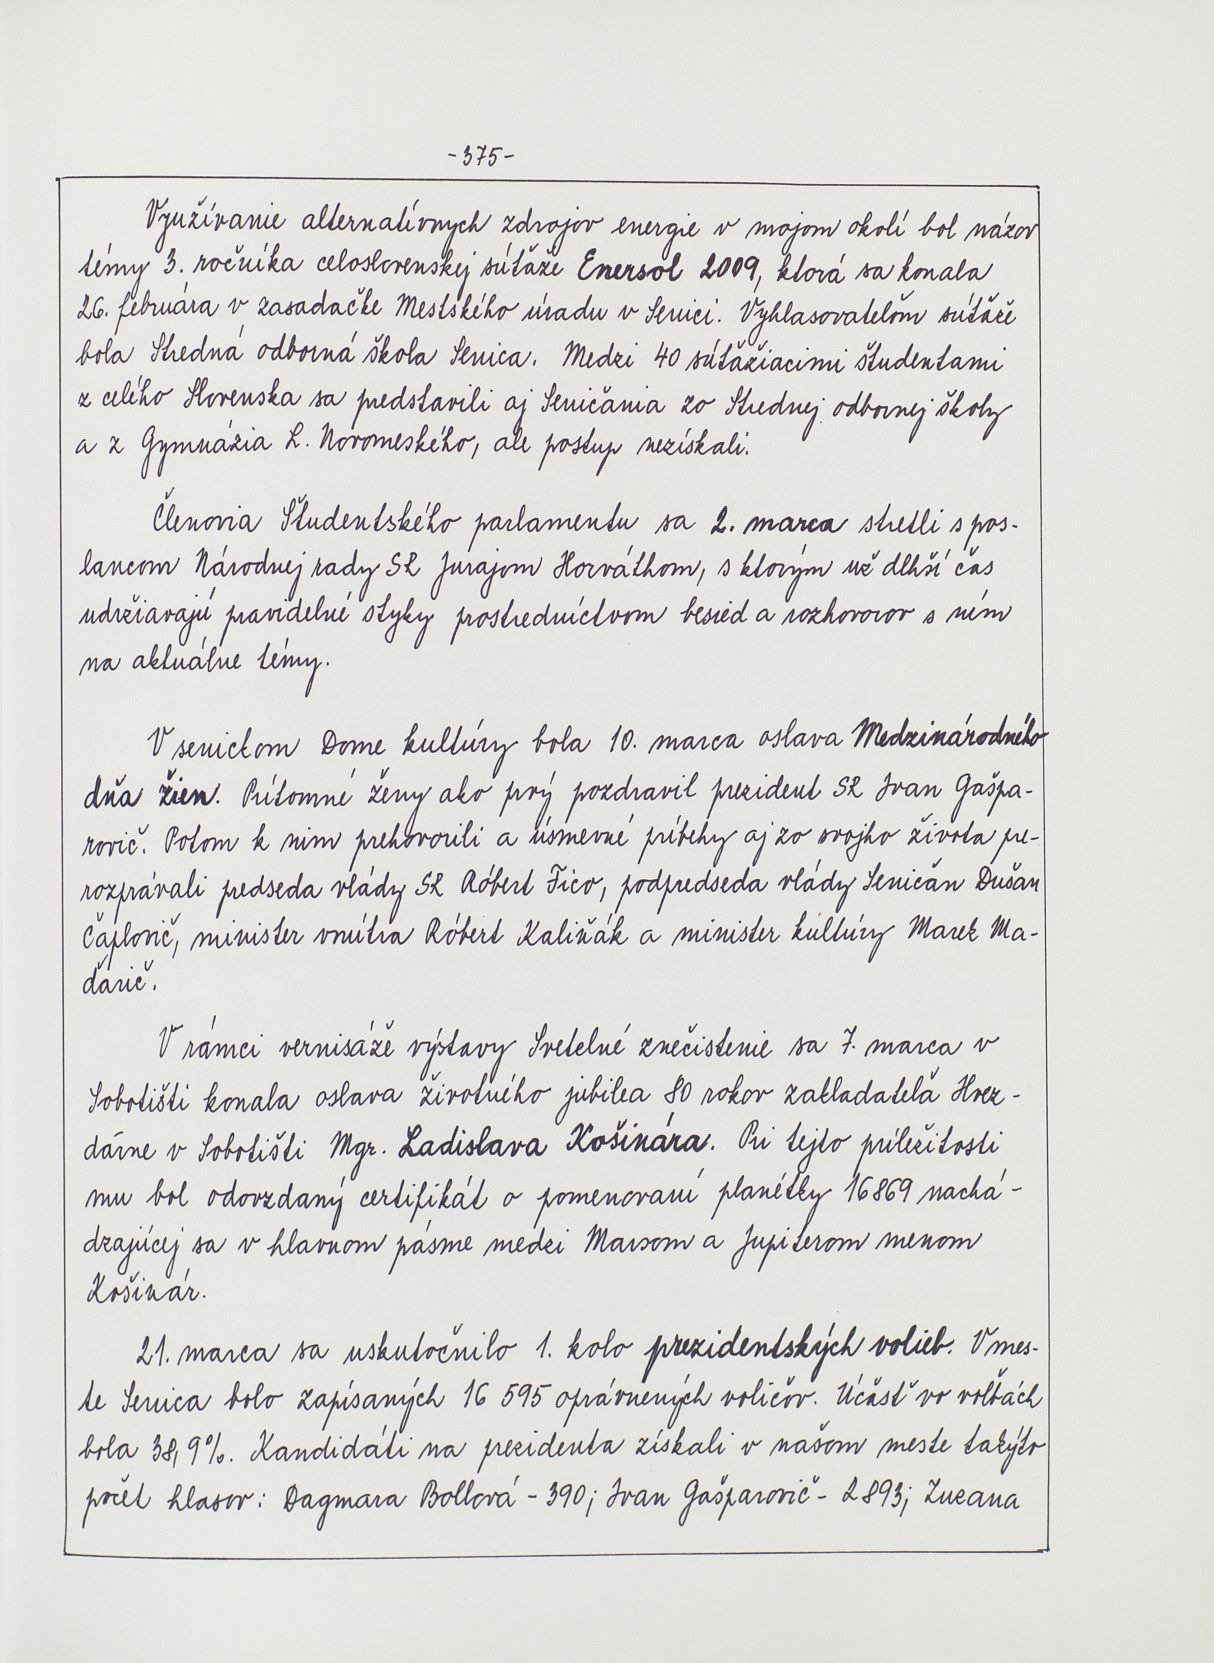 -375-
Využívanie alternatívnych zdrojov energie v mojom okolí bol názov
témy 3. ročníka celoslovenskej súťaže Enersol 2009, ktorá sa konala
26. februára v zasadačke Mestského úradu v Senici. Vyhlasovateľom súťaže
bola Stredná odborná škola Senica. Medzi 40 súťažiacimi študentami
z celého Slovenska sa predstavili aj Seničania zo Strednej odbornej školy
a z Gymnázia L. Novomeského, ale postup nezískali.
Členovia Študentského parlamentu sa 2. marca stretli s pos-
lancom Národnej rady SR Jurajom Horváthom, s ktorým už dlhší čas
udržiavajú pravidelné styky prostredníctvom besied a rozhovorov s ním
na aktuálne témy.
V senickom Dome kultúry bola 10. marca oslava Medzinárodného
dňa žien. Prítomné ženy ako prvý pozdravil prezident SR Ivan Gašpa-
rovič. Potom k nim prehovorili a úsmevné príbehy aj zo svojho života pre-
rozprávali predseda vlády SR Róbert Fico, podpredseda vlády Seničan Dušan
Čaplovič, minister vnútra Róbert Kaliňák a minister kultúry Marek Ma-
ďarič.
V rámci vernisáže výstavy Svetelné znečistenie sa 7. marca v
Sobotišti konala oslava životného jubilea 80 rokov zakladateľa Hvez-
dárne v Sobotišti Mgr. Ladislava Košinára. Pri tejto príležitosti
mu bol odovzdaný certifikát o pomenovaní planétky 16869 nachá-
dzajúcej sa v hlavnom pásme medzi Marsom a Jupiterom menom
Košinár.
21. marca sa uskutočnilo 1. kolo prezidentských volieb. V mes-
te Senica bolo zapísaných 16 595 oprávnených voličov. Účasť vo voľbách
bola 38,9%. Kandidáti na prezidenta získali v našom meste takýto
počet hlasov: Dagmara Bollová - 390; Ivan Gašparovič - 2893; Zuzana